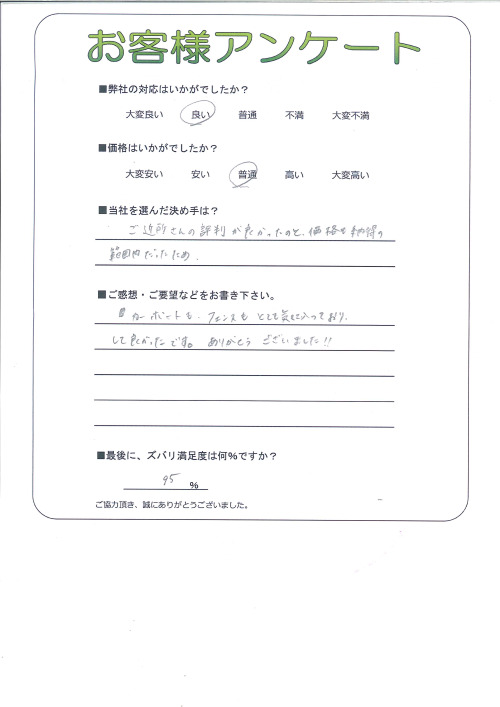 お客様アンケート
■弊社の対応はいかがでしたか？
大変良い 良い 普通 不満 大変不満
■価格はいかがでしたか？
大変安い 安い 普通 高い 大変高い
■当社を選んだ決め手は？
ご近所さんの評判が良かったのと、価格も納得の
範囲内だったため。
■ご感想・ご要望などをお書き下さい。
カーポートも、フェンスもとても気に入っており、
して良かったです。ありがとうございました!!
■最後に、ズバリ満足度は何％ですか？
95 ％
ご協力頂き、誠にありがとうございました。